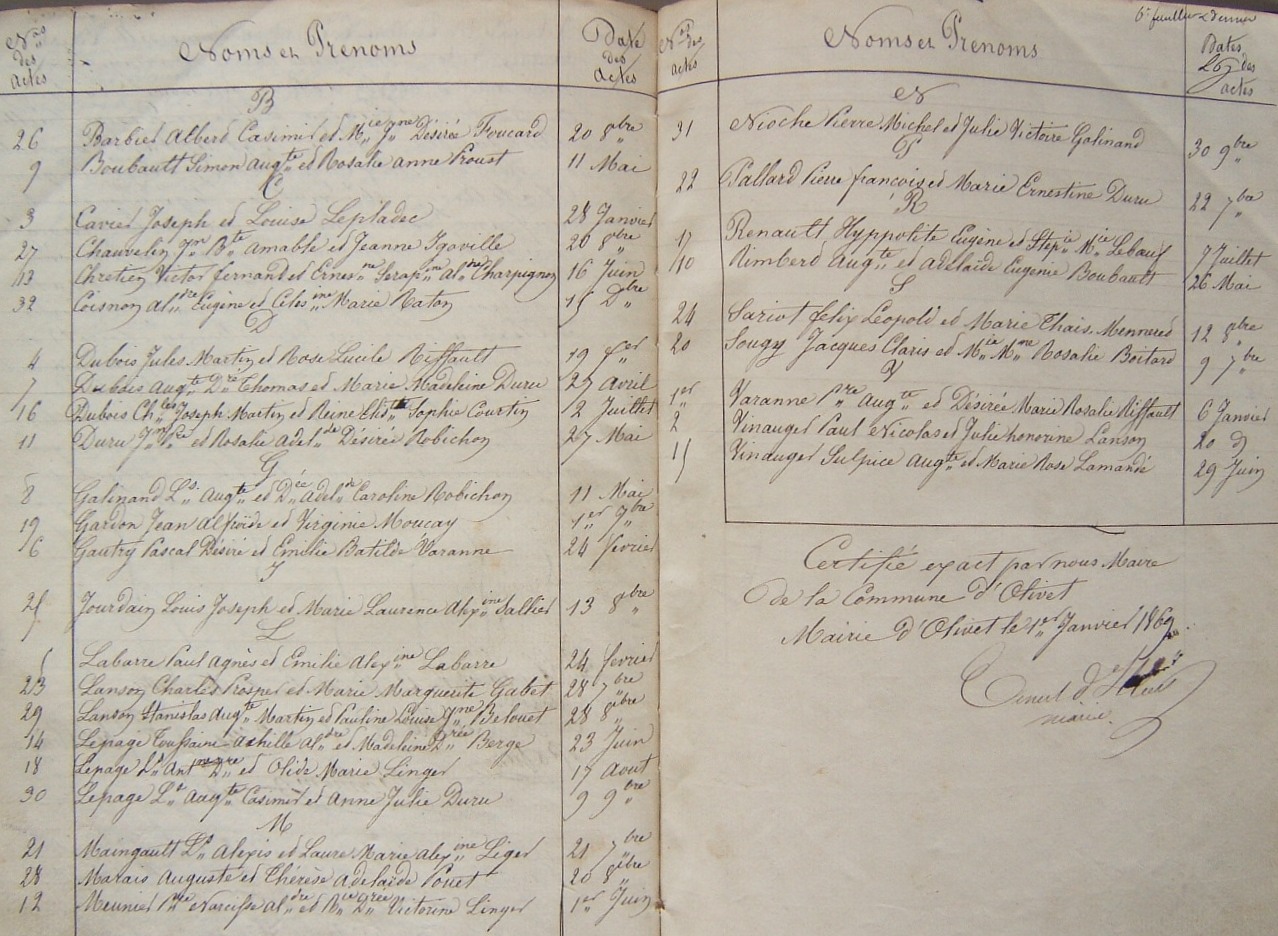 Nos des actes
Noms et Prenoms
Date des actes
B
26 Barbier Albert Casimir et Mie Jne Désirée Foucard 20 8bre
9 Boubault Simon Augte et Rosalie Anne Proust 11 Mai
C
3 Cavier Joseph et Louise Lepladec 28 Janvier
27 Chauvelin Jn Bte amable et Jeanne Igoville 20 8bre
13 Chretien Victor fernand et Ernesne Serapine Alne Charpignon 16 Juin
32 Coisnon Aldre Eugène et Célesine Marie Raton 15 Dbre
D
4 Dubois Jules Martin et Rose Lucile Riffault 19 fer
7 Dubois Augte Dre Thomas et Marie Madeleine Duru 27 avril
16 Dubois Chles Joseph Martin et Reine Elisth Sophie Courtin 2 Juillet
11 Duru Jn Pre et Rosalie Adelde Désirée Robichon 27 Mai
G
8 Galinand Ls Augte et Dée Adelde Caroline Robichon 11 Mai
19 Gardon Jean Alfroide et Virginie Moucay 1er 7bre
6 Gautry Pascal Désiré et Emilie Batilde Varanne 24 fevrier
J
25 Jourdain Louis Joseph et Marie Laurence Alexine Sallier 13 8bre
L
5 Labarre Paul Agnès et Emilie Alexine Labarre 24 fevrier
23 Lanson Charles Prosper et Marie Marguerite Gabet 28 7bre
29 Lanson Stanislas Augte Martin et Pauline Louise Jne Belouet 28 8bre
14 Lepage Toussaint Achille Aldre et Madeleine Drée Berge 23 Juin
18 Lepage Ls Ant Dre et Olide Marie Linger 17 Aout
30 Lepage Lt Augte Casimir et Anne Julie Duru 9 9bre
M
21 Maingault Ls Alexis et Laure Marie Alexine Léger 21 7bre
28 Marais Auguste et Thérèse Adelaïde Pouet 20 8bre
12 Meunier Pre Narcisse Aldre et Rie Drée Victorine Linger 1er Juin
6e feuillet et dernier
Nos des actes
Noms et Prenoms
Dates des actes
N
31 Nioche Pierre Michel et Julie Victoire Galinand 30 9bre
P
22 Pallard Pierre françois et Marie Ernestine Duru 22 7bre
R
17 Renault Hyppolite Eugène et Stepie Mie Lebauf 7 Juillet
10 Rimberd Augte et Adelaïde Eugenie Boubault 26 Mai
S
24 Sariot felix Léopold et Marie Thais Mennered 12 8bre
20 Sougy Jacques Claris et Mie Mne Rosalie Boitard 9 7bre
V
1er Varanne Pre Augte et Désirée Marie Rosalie Riffault 6 Janvier
2 Vinauger Paul Nicolas et Julie honorine Lanson 20 d
15 Vinauger Sulpice Augte et Marie Rose Lamandé 29 Juin
Certifié exact par nous Maire
de la Commune d'Olivet
Mairie d'Olivet le 1er Janvier 1869
maire